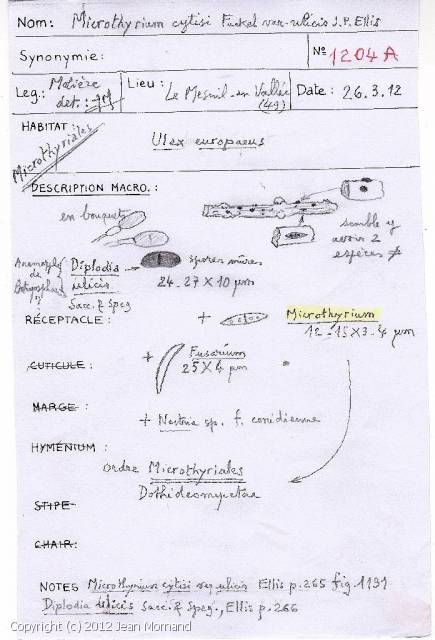 Nom: Microthyrium cytisi Fuckel var. ulicis J.P. Ellis
Synonymie: Nº 1204 A
Leg.: Molière det.: JM Lieu: Le Mesnil-en Vallée (49) Date: 26.3.12
HABITAT: Ulex europaeus
Microthyriales
DESCRIPTION MACRO.:
en bouquets
semble y avoir 2 espèces ≠
Anamorphe de
Diplodia ulicis Sacc. & Speg
spores mûres
24-27 X 10 µm
RÉCEPTACLE: + Microthyrium
12-15 X 3-4 µm
CUTICULE: + Fusarium
25 X 4 µm
MARGE:
+ Nectria sp. f. conidienne
HYMÉNIUM:
Ordre Microthyriales
Dothideomycetae
STIPE
CHAIR:
NOTES Microthyrium cytisi var. ulicis Ellis p.265 fig.1191
Diplodia ulicis Sacc. & Speg., Ellis p.266
Copyright (c) 2012 Jean Mornand